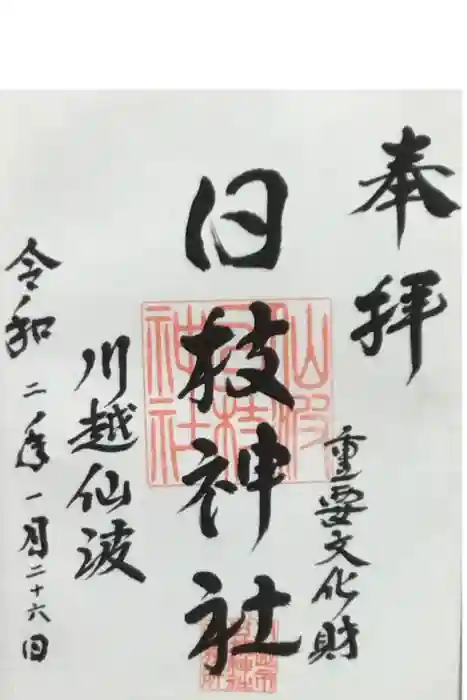 奉拝
重要文化財
日枝神社
仙波日枝神社
川越仙波
令和二年一月二十六日